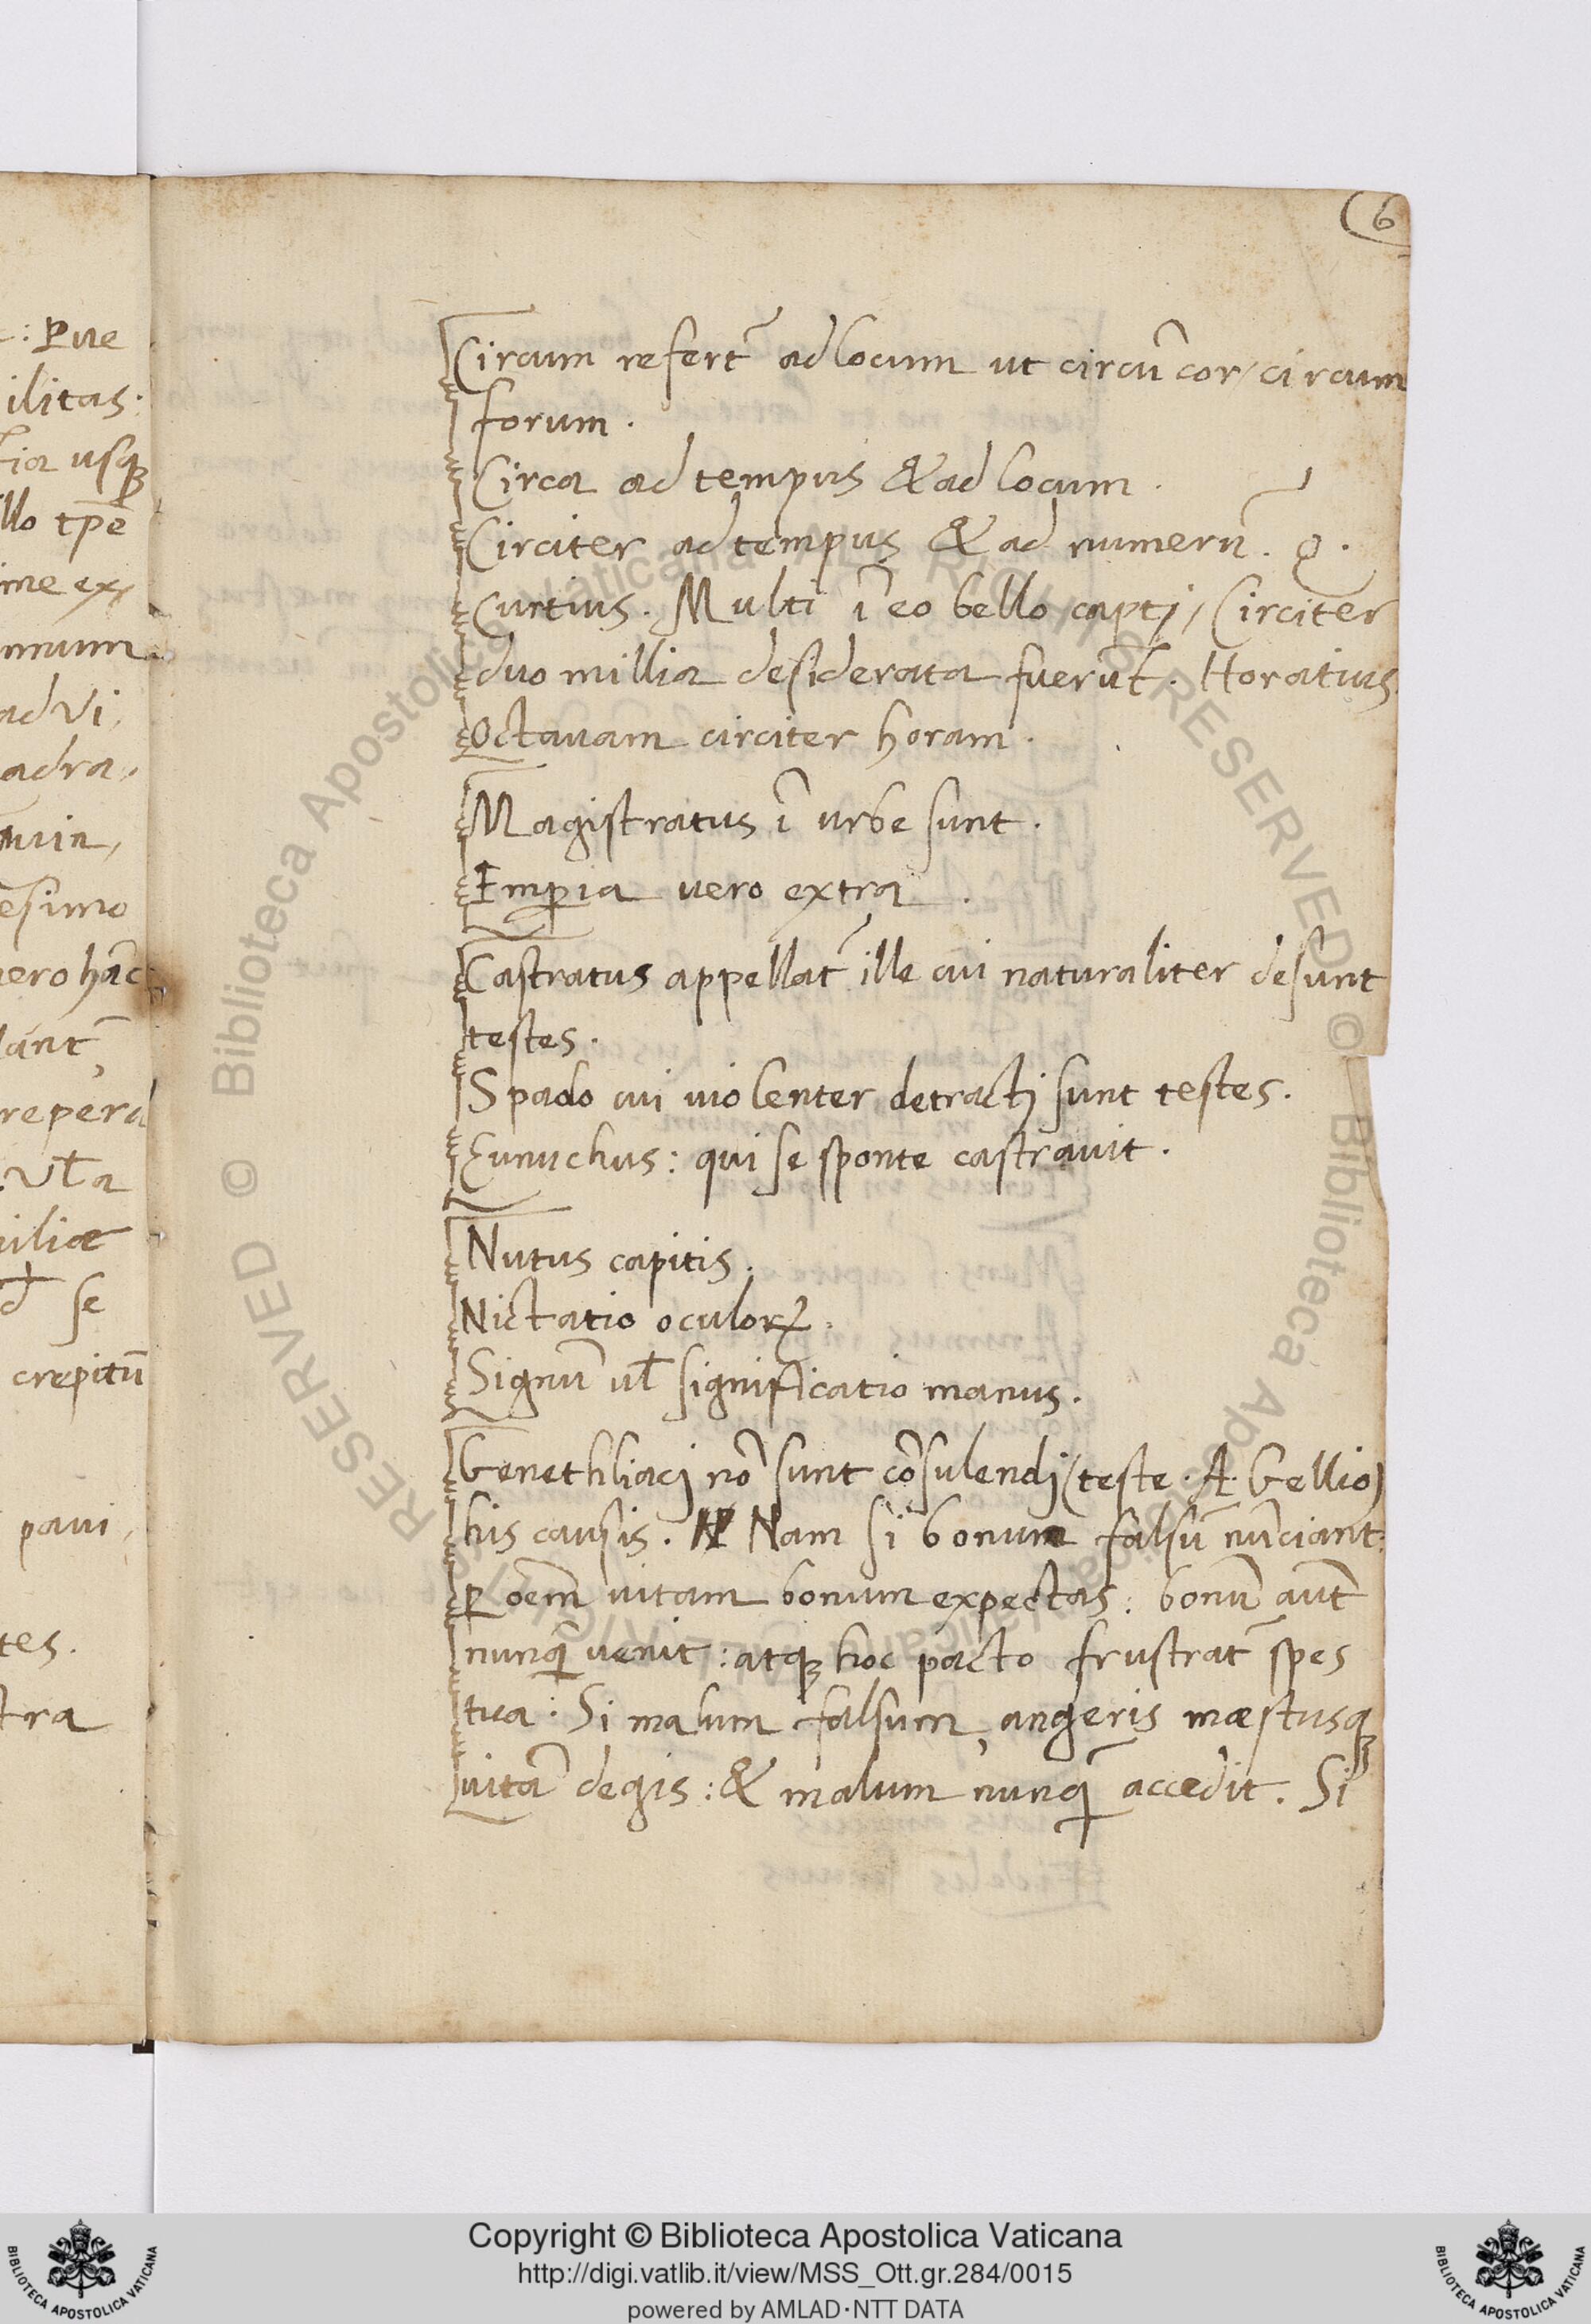 6
Circum refert᷑ ad locum ut circū cor / circum
forum.
Circa ad tempus & ad locum.
Circiter ad tempus & ad numerū. Q.
Curtius. Multi ī eo bello captj / Circiter
duo millia desiderata fuerūt. Horatius
Octauam circiter horam.
Magistratus ī urbe sunt.
Emꝑia uero extra.
Castratus appellat᷑ ille cui naturaliter desunt
testes.
Spado cui uiolenter detractj sunt testes.
Eunuchus: qui se sponte castrauit.
Nutus capitis.
Nictatio oculoꝝ.
Signū ul̄ significatio manus.
Genethliacj nō sunt cōsulendj (teste. A. Gellio)
his causis. Nam si bonum falsū nūciant:
ꝑ oēm uitam bonum expectas: bonū aūt
nunq̄ uenit: atqꝫ hoc pacto frustrat᷑ spes
tua: Si malum falsum, angeris mæstusqꝫ
uitā degis: & malum nunq̄ accedit. Si
: ꝑue
ilitas:
tia usqꝫ
llo tp̄e
ime ex/
mum
ad Vi,
adra,
uin,
esimo
uero hāc
lant᷑,
repera
. Vl̄a
uiliæ
se
crepitū
paui,
tes.
tra
© Biblioteca Apostolica Vaticana ALL RIGHTS RESERVED © Biblioteca Apostolica Vaticana ALL RIGHTS RESERVED
Copyright © Biblioteca Apostolica Vaticana
http://digi.vatlib.it/view/MSS_Ott.gr.284/0015
powered by AMLAD·NTT DATA
BIBLIOTECA APOSTOLICA VATICANA
BIBLIOTECA APOSTOLICA VATICANA